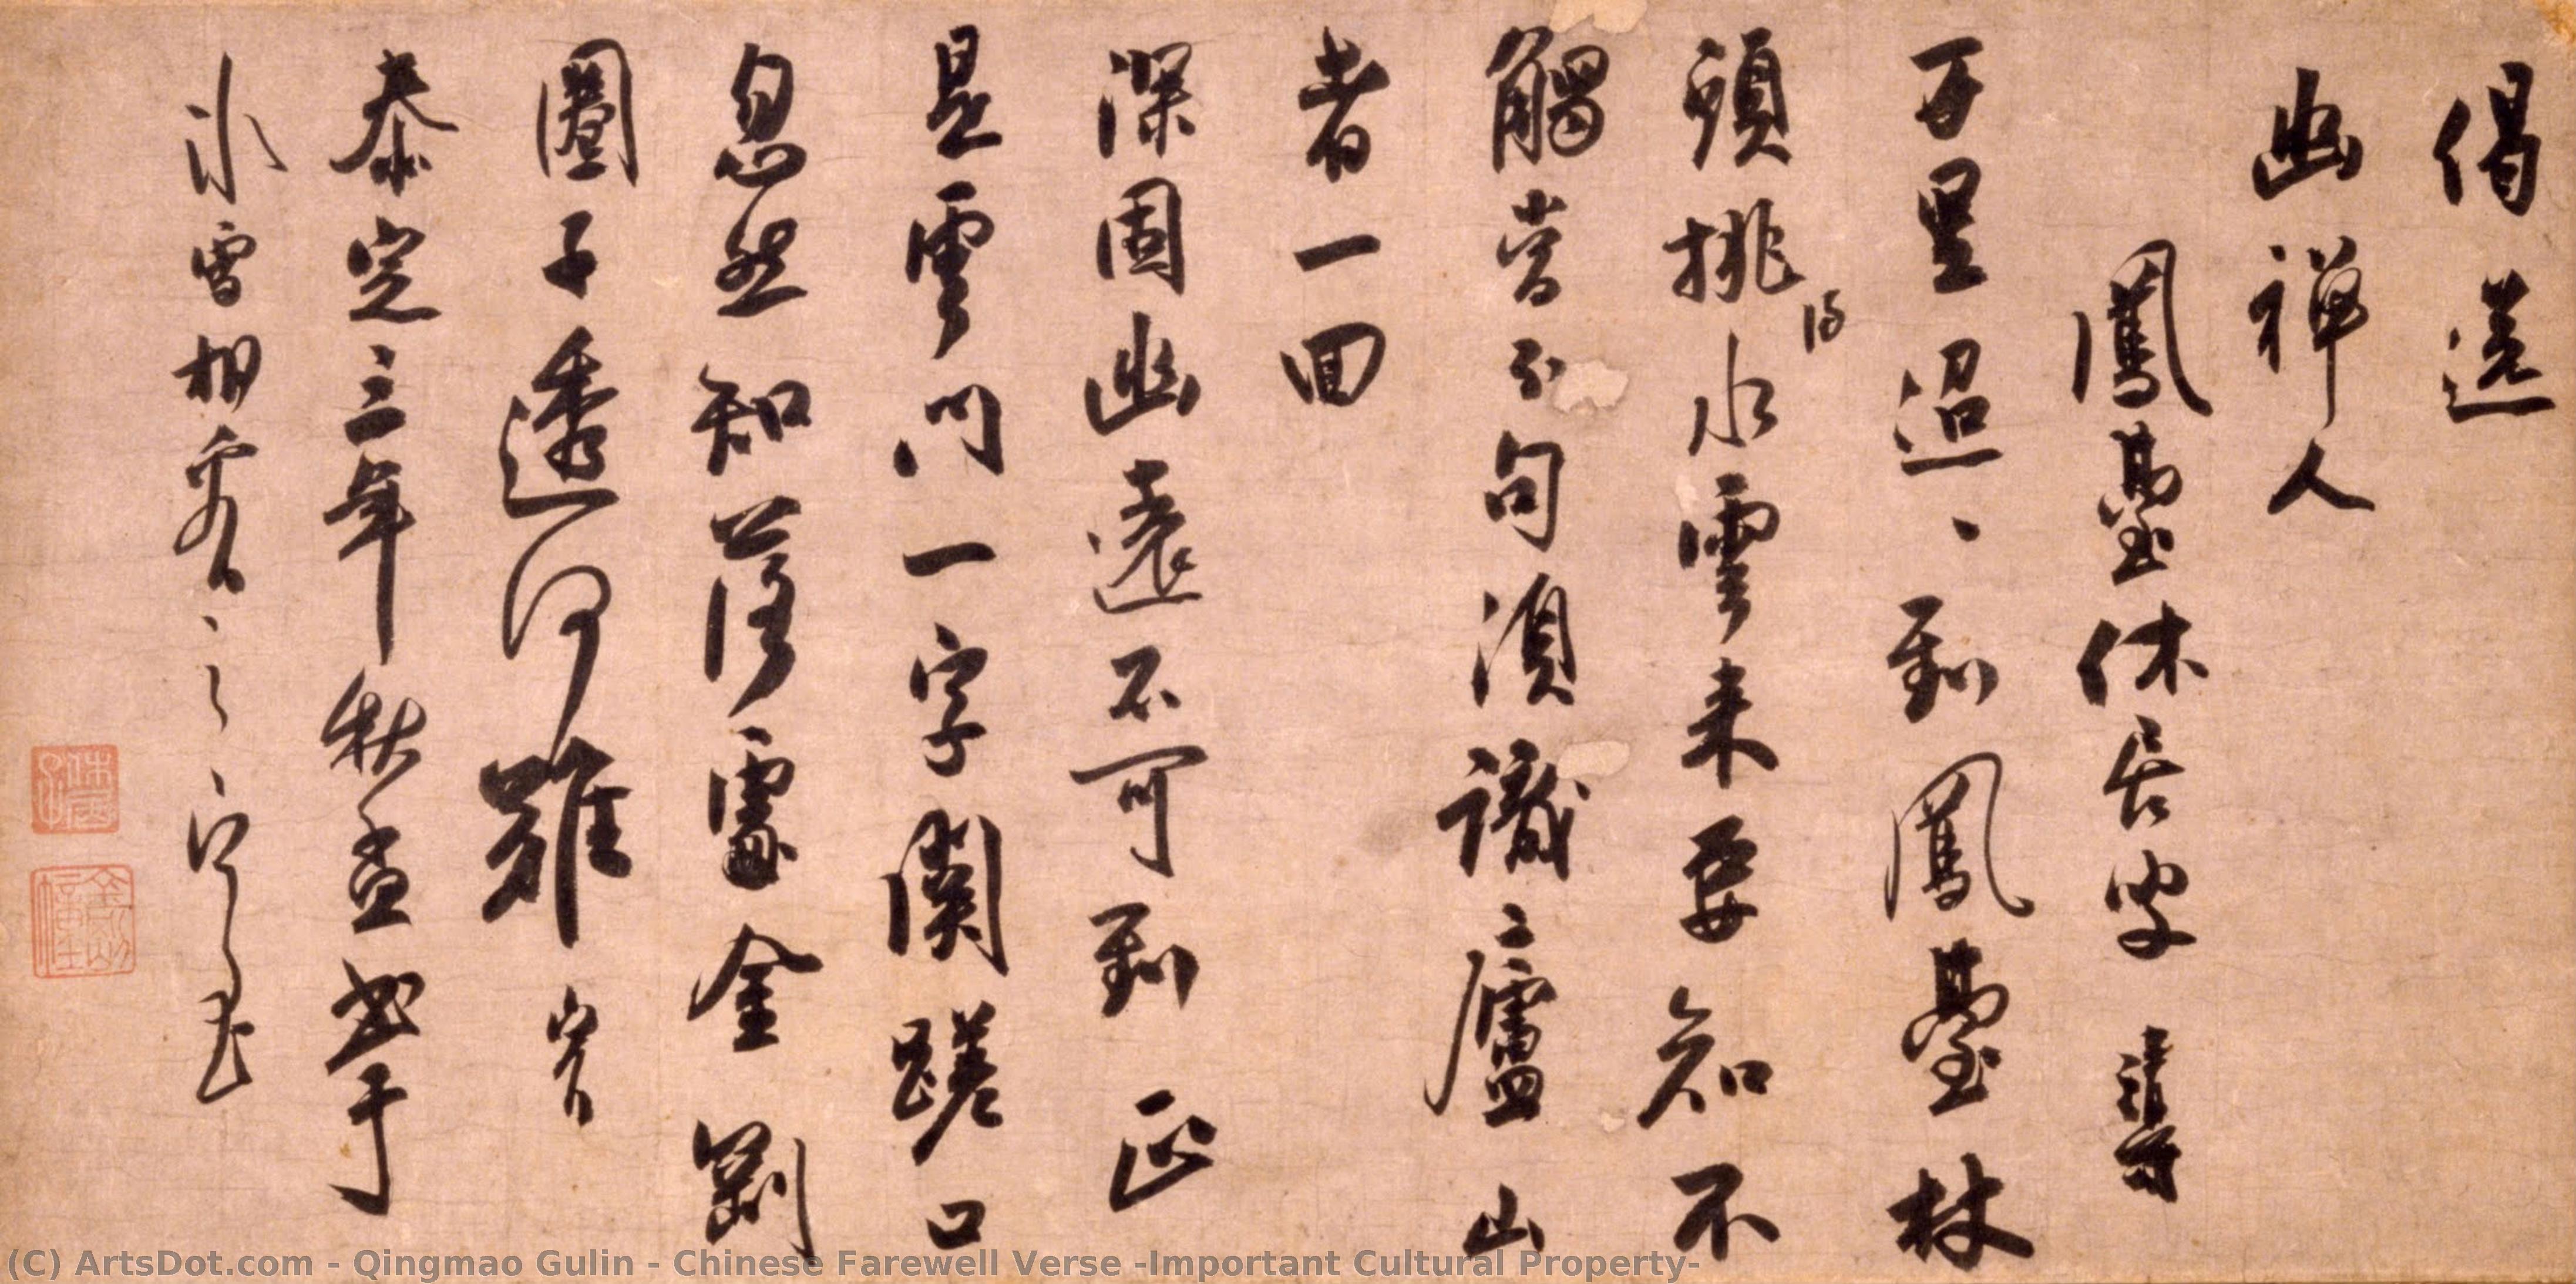 偈送
幽禅人
鳳臺休居叟 清茂
万里迢〻到鳳臺杖
頭挑得水雲来要知不
觸當不句須識廬山
者一回
深固幽遠不可到 正
是雲門一字関蹉口
忽然知落處金剛
圈子透何難 實
泰定三年秋孟書于
氷雪相看之
(C) ArtsDot.com - Qingmao Gulin - Chinese Farewell Verse -Important Cultural Property-